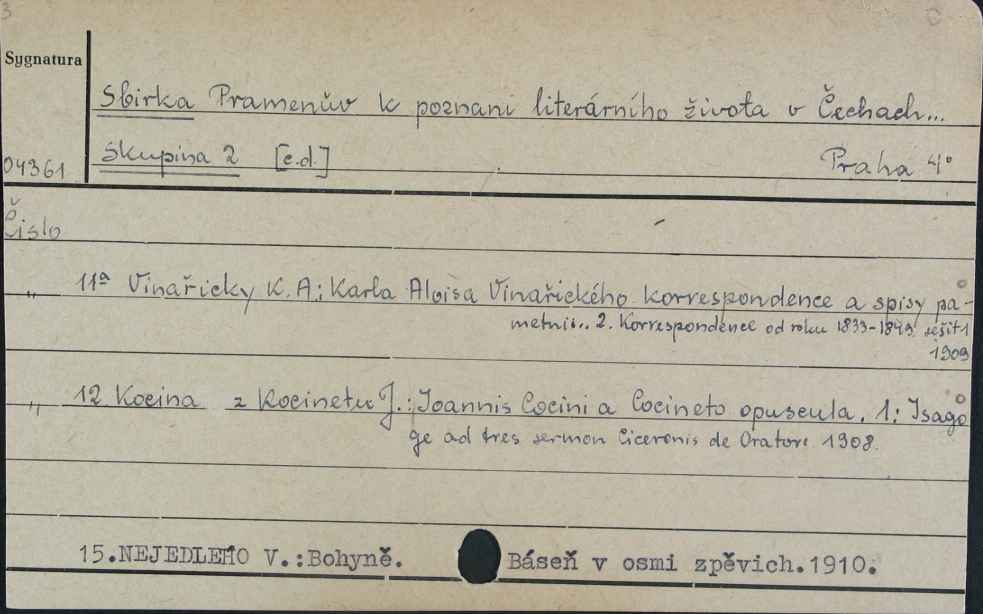 3
Sygnatura
Sbirka Pramenův k poznani literárního života v Čechach...
04361 Skupina 2 [c.d.] Praha 4°
Čislo
„ 11ª Vinařicky K. A.: Karla Aloisa Vinařického korrespondence a spisy pa-
metnii.. 2. Korrespondence od roku 1833-1849. sešit 1
1909
„ 12 Kocina z Kocinetu J.: Joannis Cocini a Cocineto opuscula. 1: Isago
ge ad tres sermon Ciceronis de Oratore 1908.
15.NEJEDLEHO V.:Bohyně. Báseň v osmi zpěvich.1910.